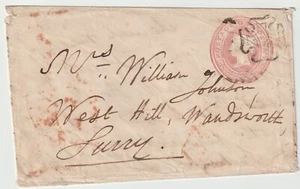 Mrs William
Johnson,
West Hill, Wandsworth,
Surry.